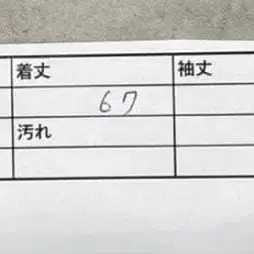 着丈 袖丈
67
汚れ